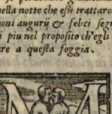 nella notte che essi trattaro
oni augurij & felici segn
i piu nel proposito ch'egli
re a questa foggia.